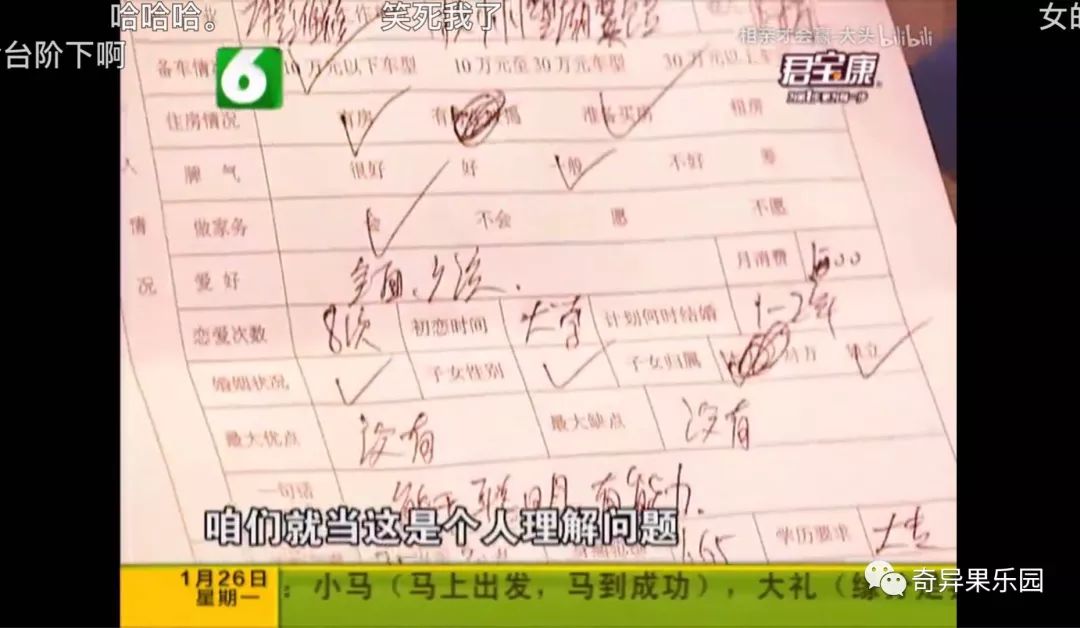 哈哈哈哈。
笑死我了
女的
台阶下啊
相亲才会赢 大头 bilibili
6
君宝康
备车情况 10万元以下车型 10万元至30万元车型 30万元以上车
住房情况 有房 准备买房 租房
人
脾 气 很好 好 一般 不好 差
情
做家务 会 不会 愿 不愿
况
爱 好 月消费
恋爱次数 8次 初恋时间 大学 计划何时结婚 1-2年
婚姻状况 子女性别 子女归属 对方 独立
最大优点 没有 最大缺点 没有
一句话 有能力.
咱们就当这是个人理解问题
165 学历要求 大专
1月26日
星期一
：小马（马上出发，马到成功），大礼（缘
奇异果乐园